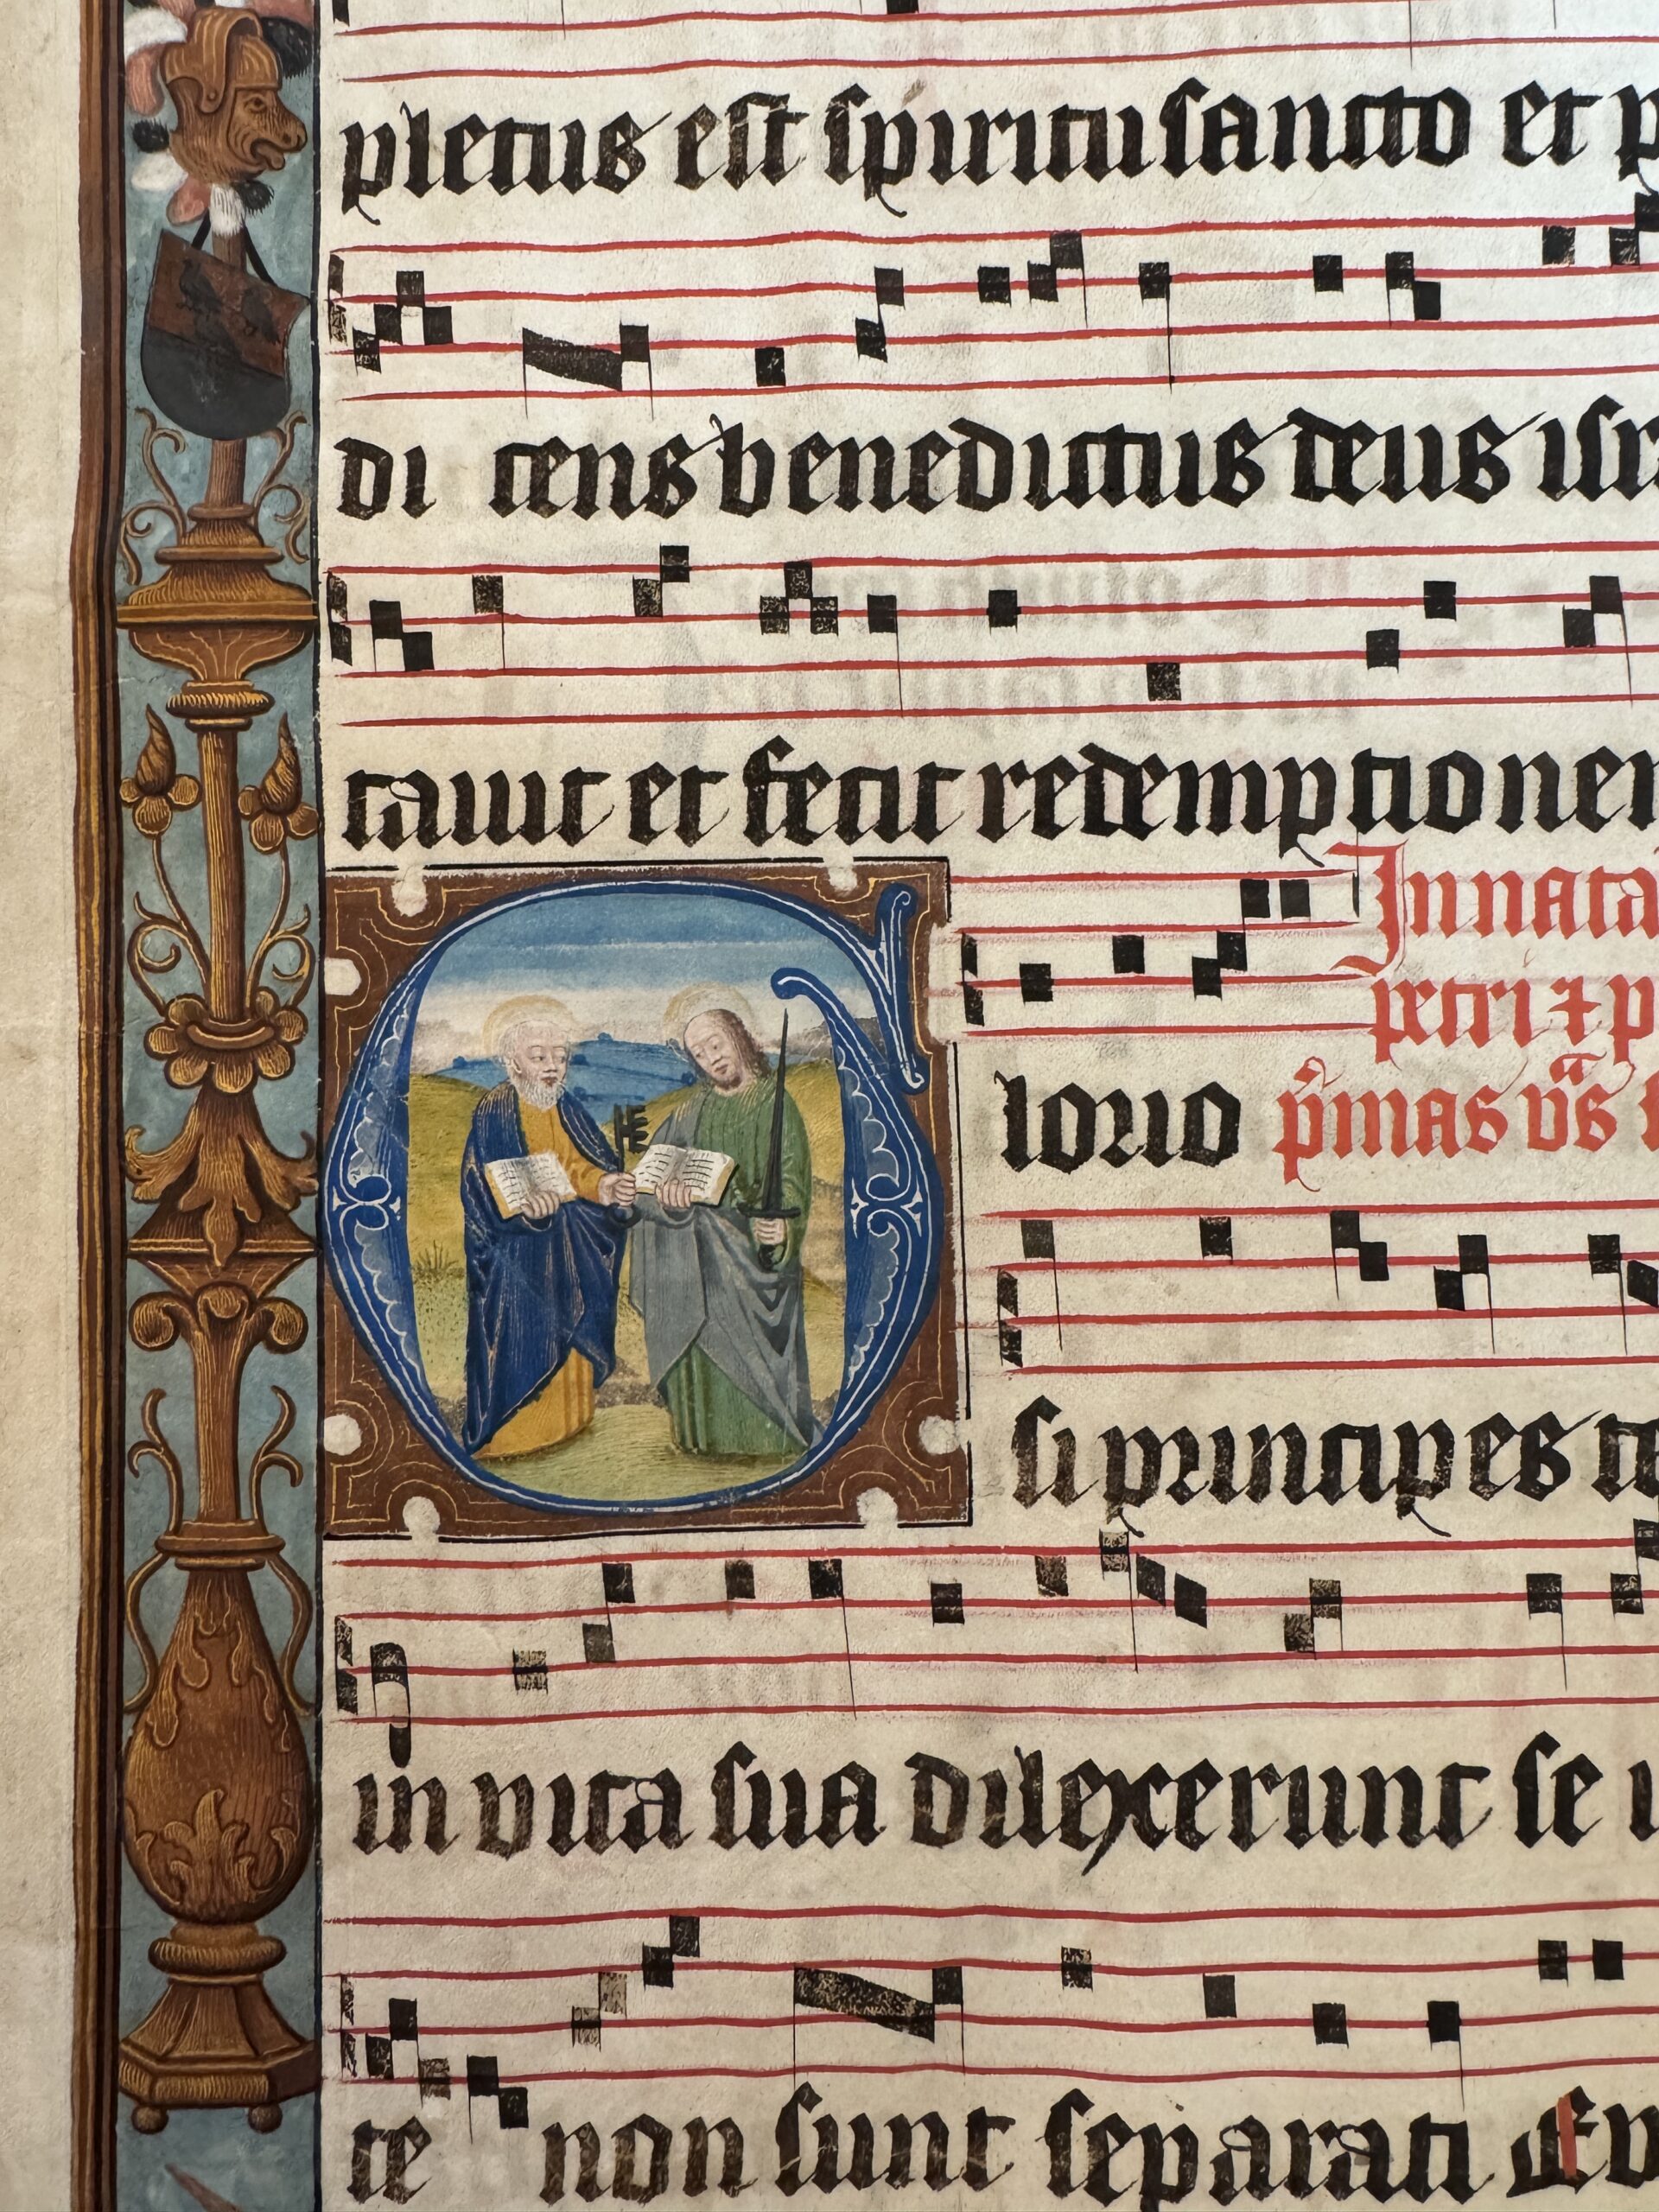 pletus est spiritu sancto et p
di cens benedictus deus isr
tauit et fecit redemptionem
In nata
petri ⁊ p
lorio p̃mas vs̃
G
si principes te
in vita sua dilexerunt se i
te non sunt separati Ev